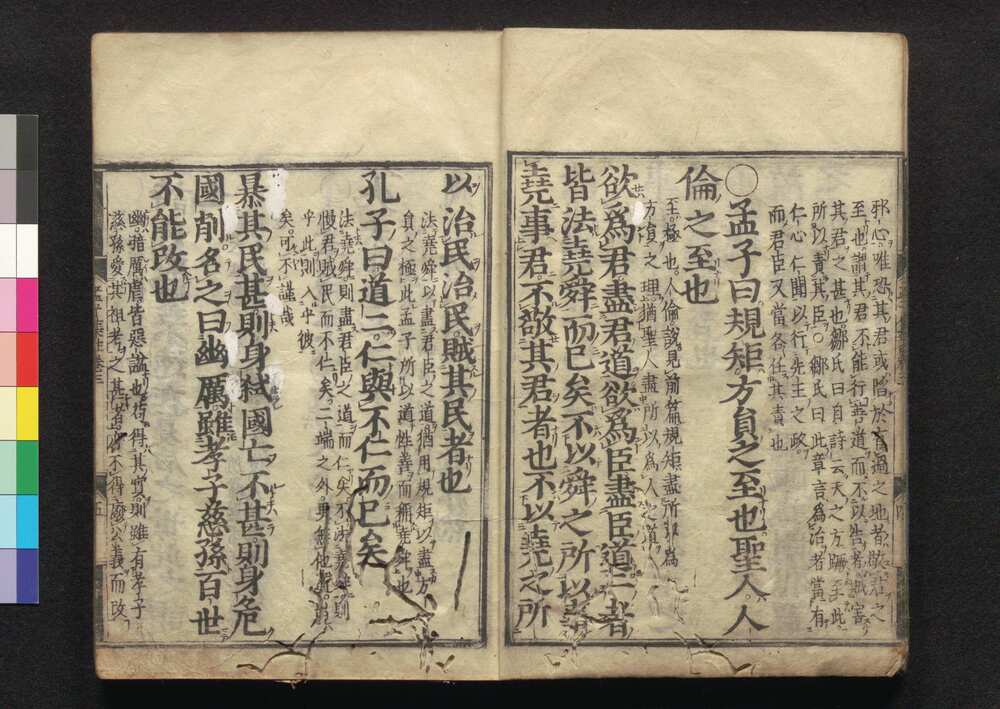 邪心唯恐其君或陷於有過之地者敬君之
至也謂其君不能行善道而不以告者賊害
其君之甚也鄒氏曰自詩云天之方蹶至此
所以責其臣鄒氏曰此章言為治者當有
仁心仁聞以行先王之政
而君臣又當各任其責也
○孟子曰規矩方員之至也聖人人
倫之至也
至極也人倫說見前篇規矩盡所以為
方員之理猶聖人盡所以為人之道
欲為君盡君道欲為臣盡臣道二者
皆法堯舜而已矣不以舜之所以事
堯事君不敬其君者也不以堯之所
以治民治民賊其民者也
法堯舜以盡君臣之道猶用規矩以盡方
員之極此孟子所以道性善而稱堯舜也
孔子曰道二仁與不仁而已矣
法堯舜則盡君臣之道而仁矣不法堯舜則
慢君賊民而不仁矣二端之外更無他道出
乎此則入乎彼
矣可不謹哉
暴其民甚則身弑國亡不甚則身危
國削名之曰幽厲雖孝子慈孫百世
不能改也
幽暗厲虐皆惡謚也得其實則雖有孝子
慈孫愛其祖考之甚者亦不得廢公義而改